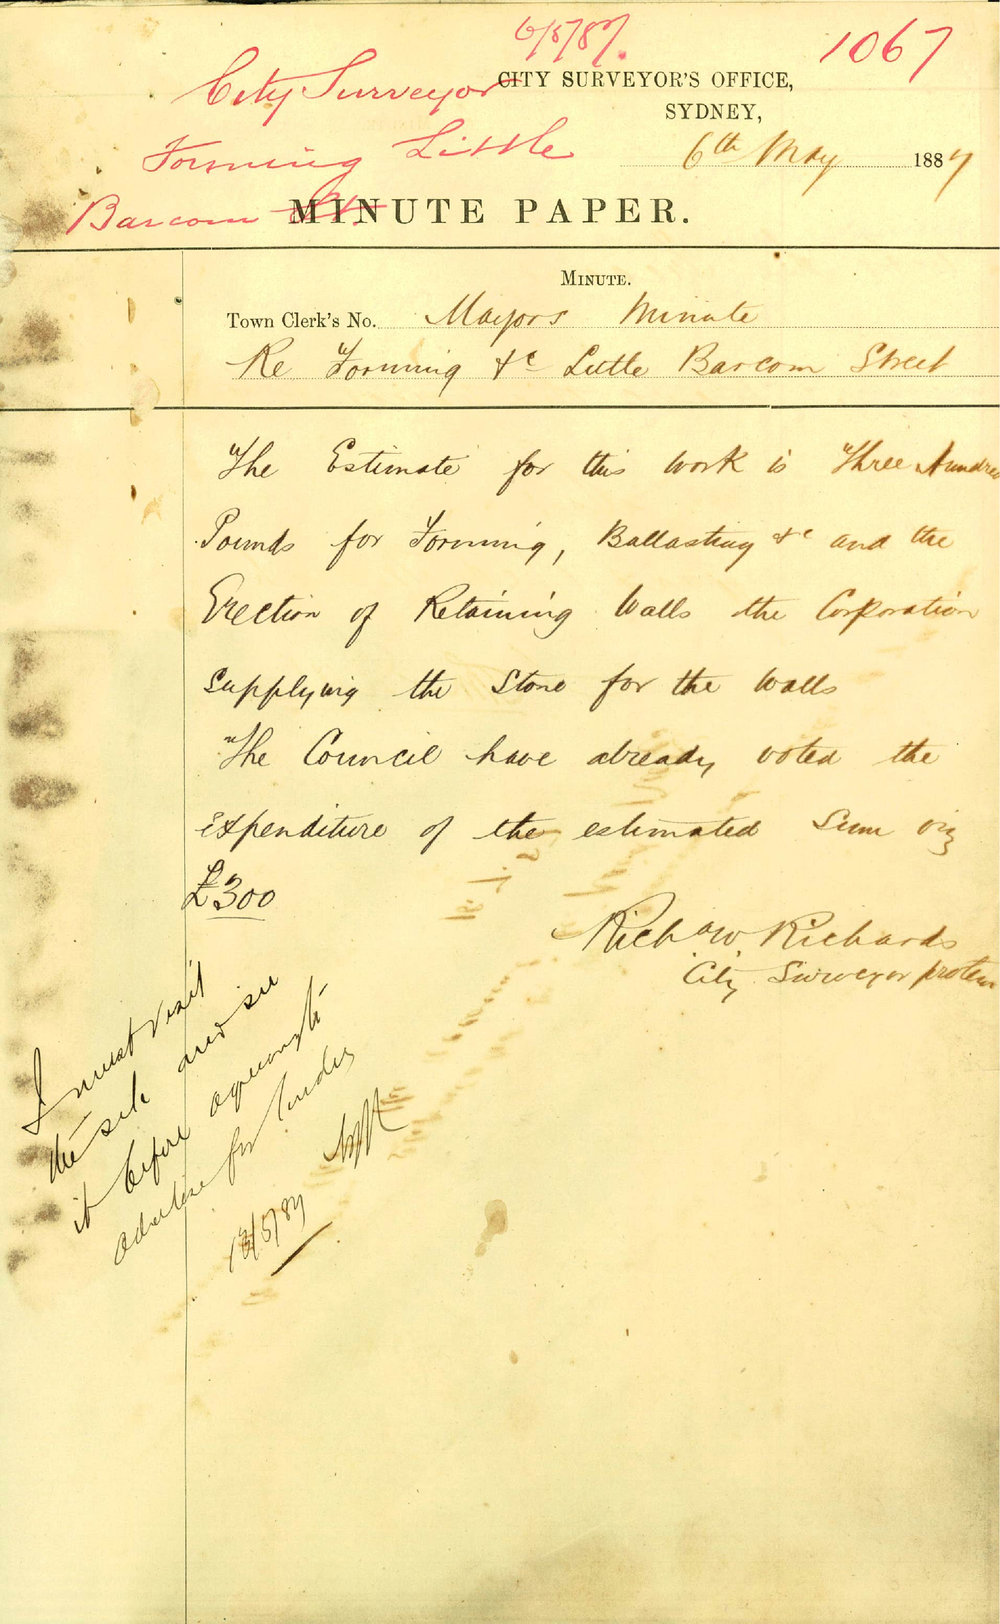 6/5/87.
1067
City Surveyor
CITY SURVEYOR'S OFFICE,
SYDNEY,
Forming Little
6th May 1887
Barcom St.
MINUTE PAPER.
MINUTE.
Town Clerk's No. Mayors Minute
Re Forming &c Little Barcom Street
The Estimate for this work is Three Hundred
Pounds for Forming, Ballasting &c and the
Erection of Retaining Walls the Corporation
supplying the Stone for the Walls
The Council have already voted the
expenditure of the estimated Sum viz
£300
Richd W. Richards
City Surveyor protem
I must visit
the site and see
it before
advertise for tenders
/5/87